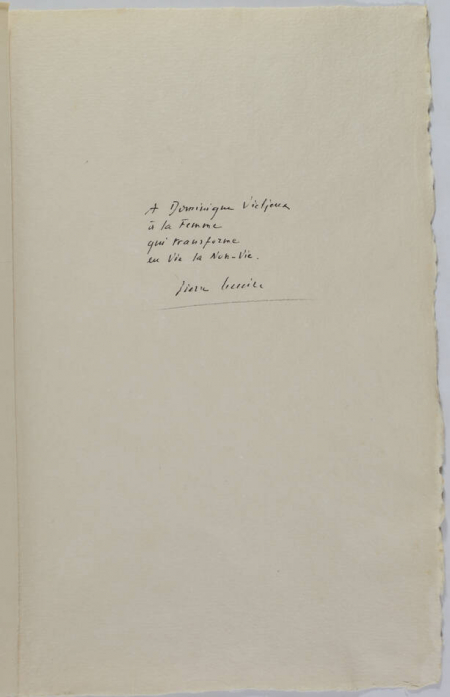 A Dominique Vieljeux
à la Femme
qui transforme
en Vie la Non-Vie.